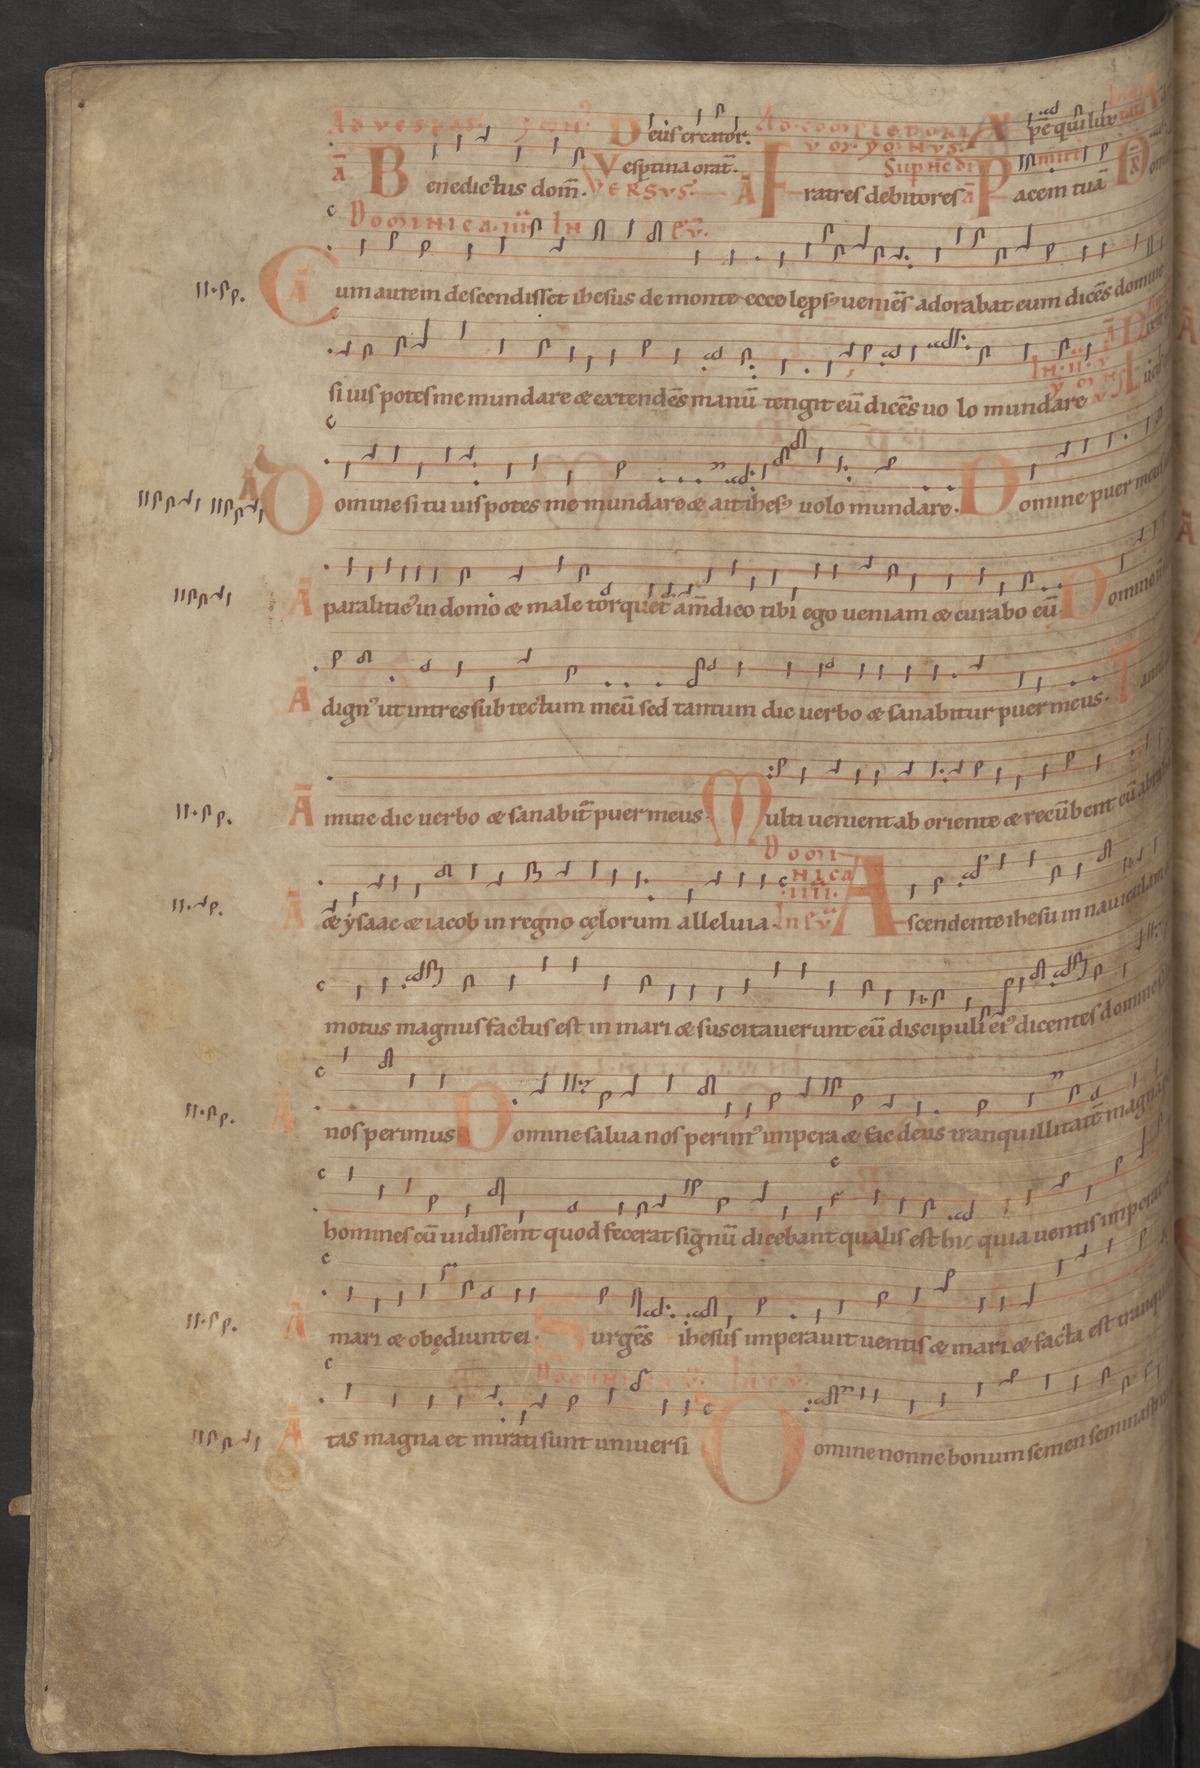 Ad vesp̄as. ymn̄⁹ Deus creator. Ad completoriū A
ā Benedictus dom̄. Vesp̄tina orat̄. VERSVS. Ā Fratres debitores ā Pacem tuā
Dominica iii In ev̄.
Cum autem descendisset ihesus de monte ecce lepsus veniēs adorabat eum dicēs domine
si uis potes me mundare & extendēs manū tengit eū dicēs uo lo mundare
Ā Domine si tu uis potes me mundare & ait ihes⁹ uolo mundare. Domine puer meus
Ā paralitic⁹ in domo & male torquet am̄ dico tibi ego ueniam & curabo eū Domine
Ā dign⁹ ut intres sub tectum meū sed tantum dic uerbo & sanabitur puer meus. T
Ā mine dic uerbo & sanabit᷑ puer meus Multi uenient ab oriente & recūbent cū
Domi
nica
iiii.
Ā & ysaac & iacob in regno cęlorum alleluia. In ev̄ Ascendente ihesu in nauiculam
motus magnus factus est in mari & suscitauerunt eū discipuli ei⁹ dicentes domine
Ā nos perimus Domine salua nos perim⁹ impera & fac deus tranquillitatē magnā
homines cū uidissent quod fecerat signū dicebant qualis est hic quia uentis imperat
Ā mari & obędiunt ei. Surgēs ihesus imperauit uentis & mari & facta est tranqui
Dominica v̄. In ev̄.
Ā tas magna et mirati sunt uniuersi Domine nonne bonum semen seminasti